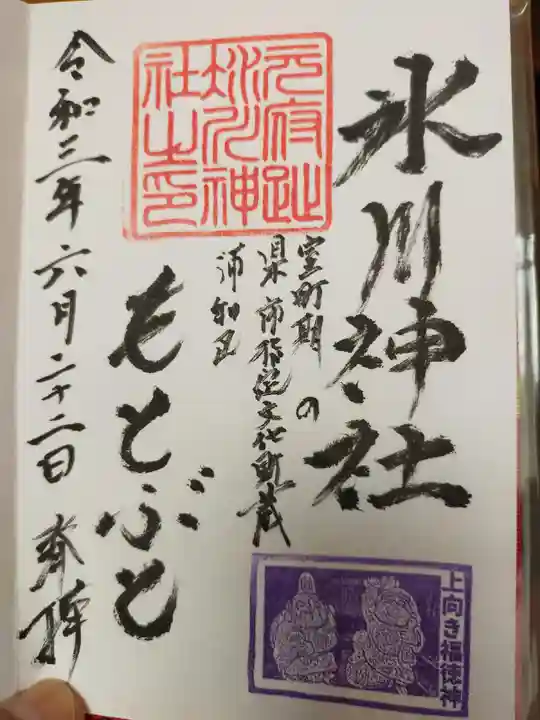 氷川神社
室町期の
県市指定文化財蔵
浦和区
もとぶと
元府趾
氷川神
社之印
令和三年六月二十二日 奉拝
上向き福徳神